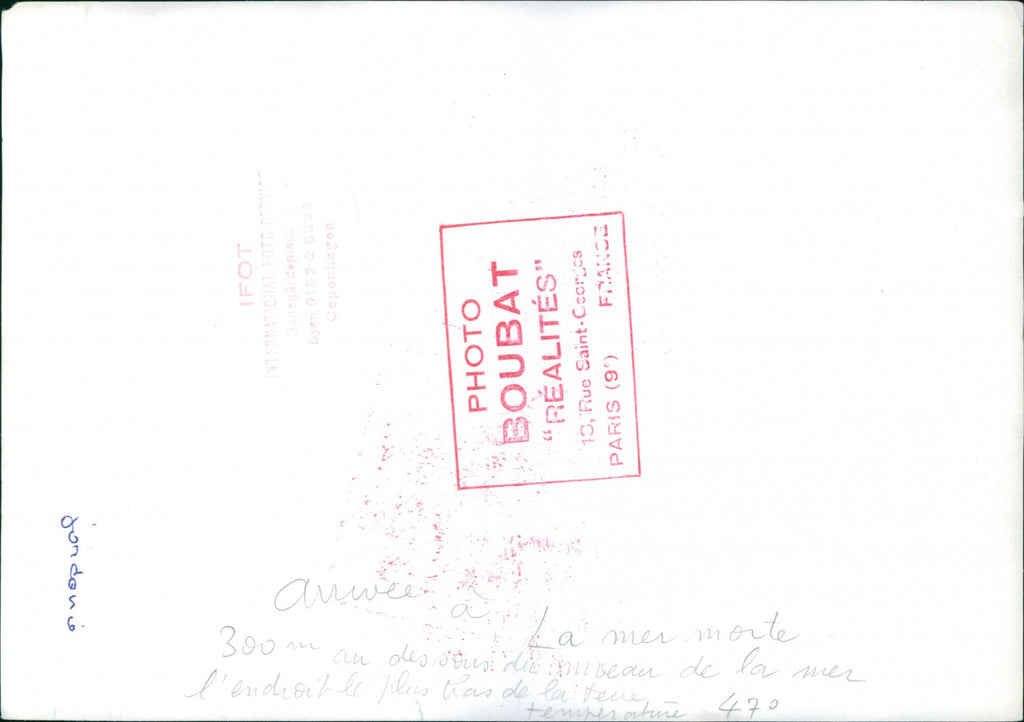 IFOT
INTERNATIONAL FOTO SERVICE
Copenhagen
PHOTO
BOUBAT
"RÉALITÉS"
13, Rue Saint-Georges
PARIS (9e) FRANCE
arrivée à La mer morte
300 m au dessous du niveau de la mer
l'endroit le plus bas de la terre
temperature 47°